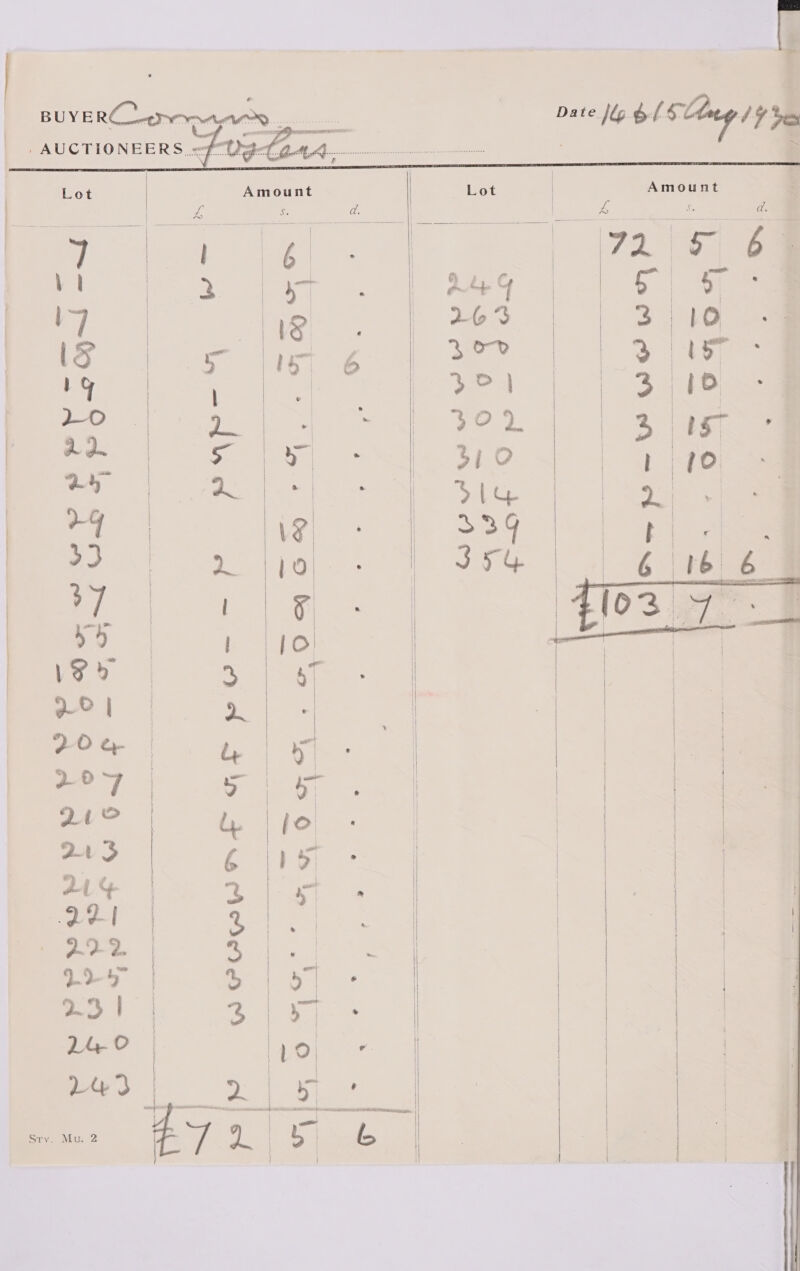 BUYER
Date
AUCTIONEERS
Lot Amount Lot Amount
£ s. d. £ s. d.
7 1 6 · 72 5 6
11 3 5 · 249 5 5 ·
17 18 · 263 3 10 ·
18 5 15 6 300 3 15 ·
19 1 · 301 3 10 ·
20 2 · · 302 3 15 ·
22 5 5 · 310 1 10 ·
25 2 · · 314 2 · ·
29 18 · 339 1 · ·
33 2 10 · 354 6 16 6
37 1 8 · £103 7 ·
55 1 10
185 3 5 ·
201 2 ·
204 4 5 ·
207 5 5 ·
210 4 10 ·
213 6 15 ·
214 3 5 ·
221 3 · ·
222 3 · ·
225 3 5 ·
231 3 5 ·
240 10 ·
243 2 5 ·
£72 5 6
Srv. Mu. 2